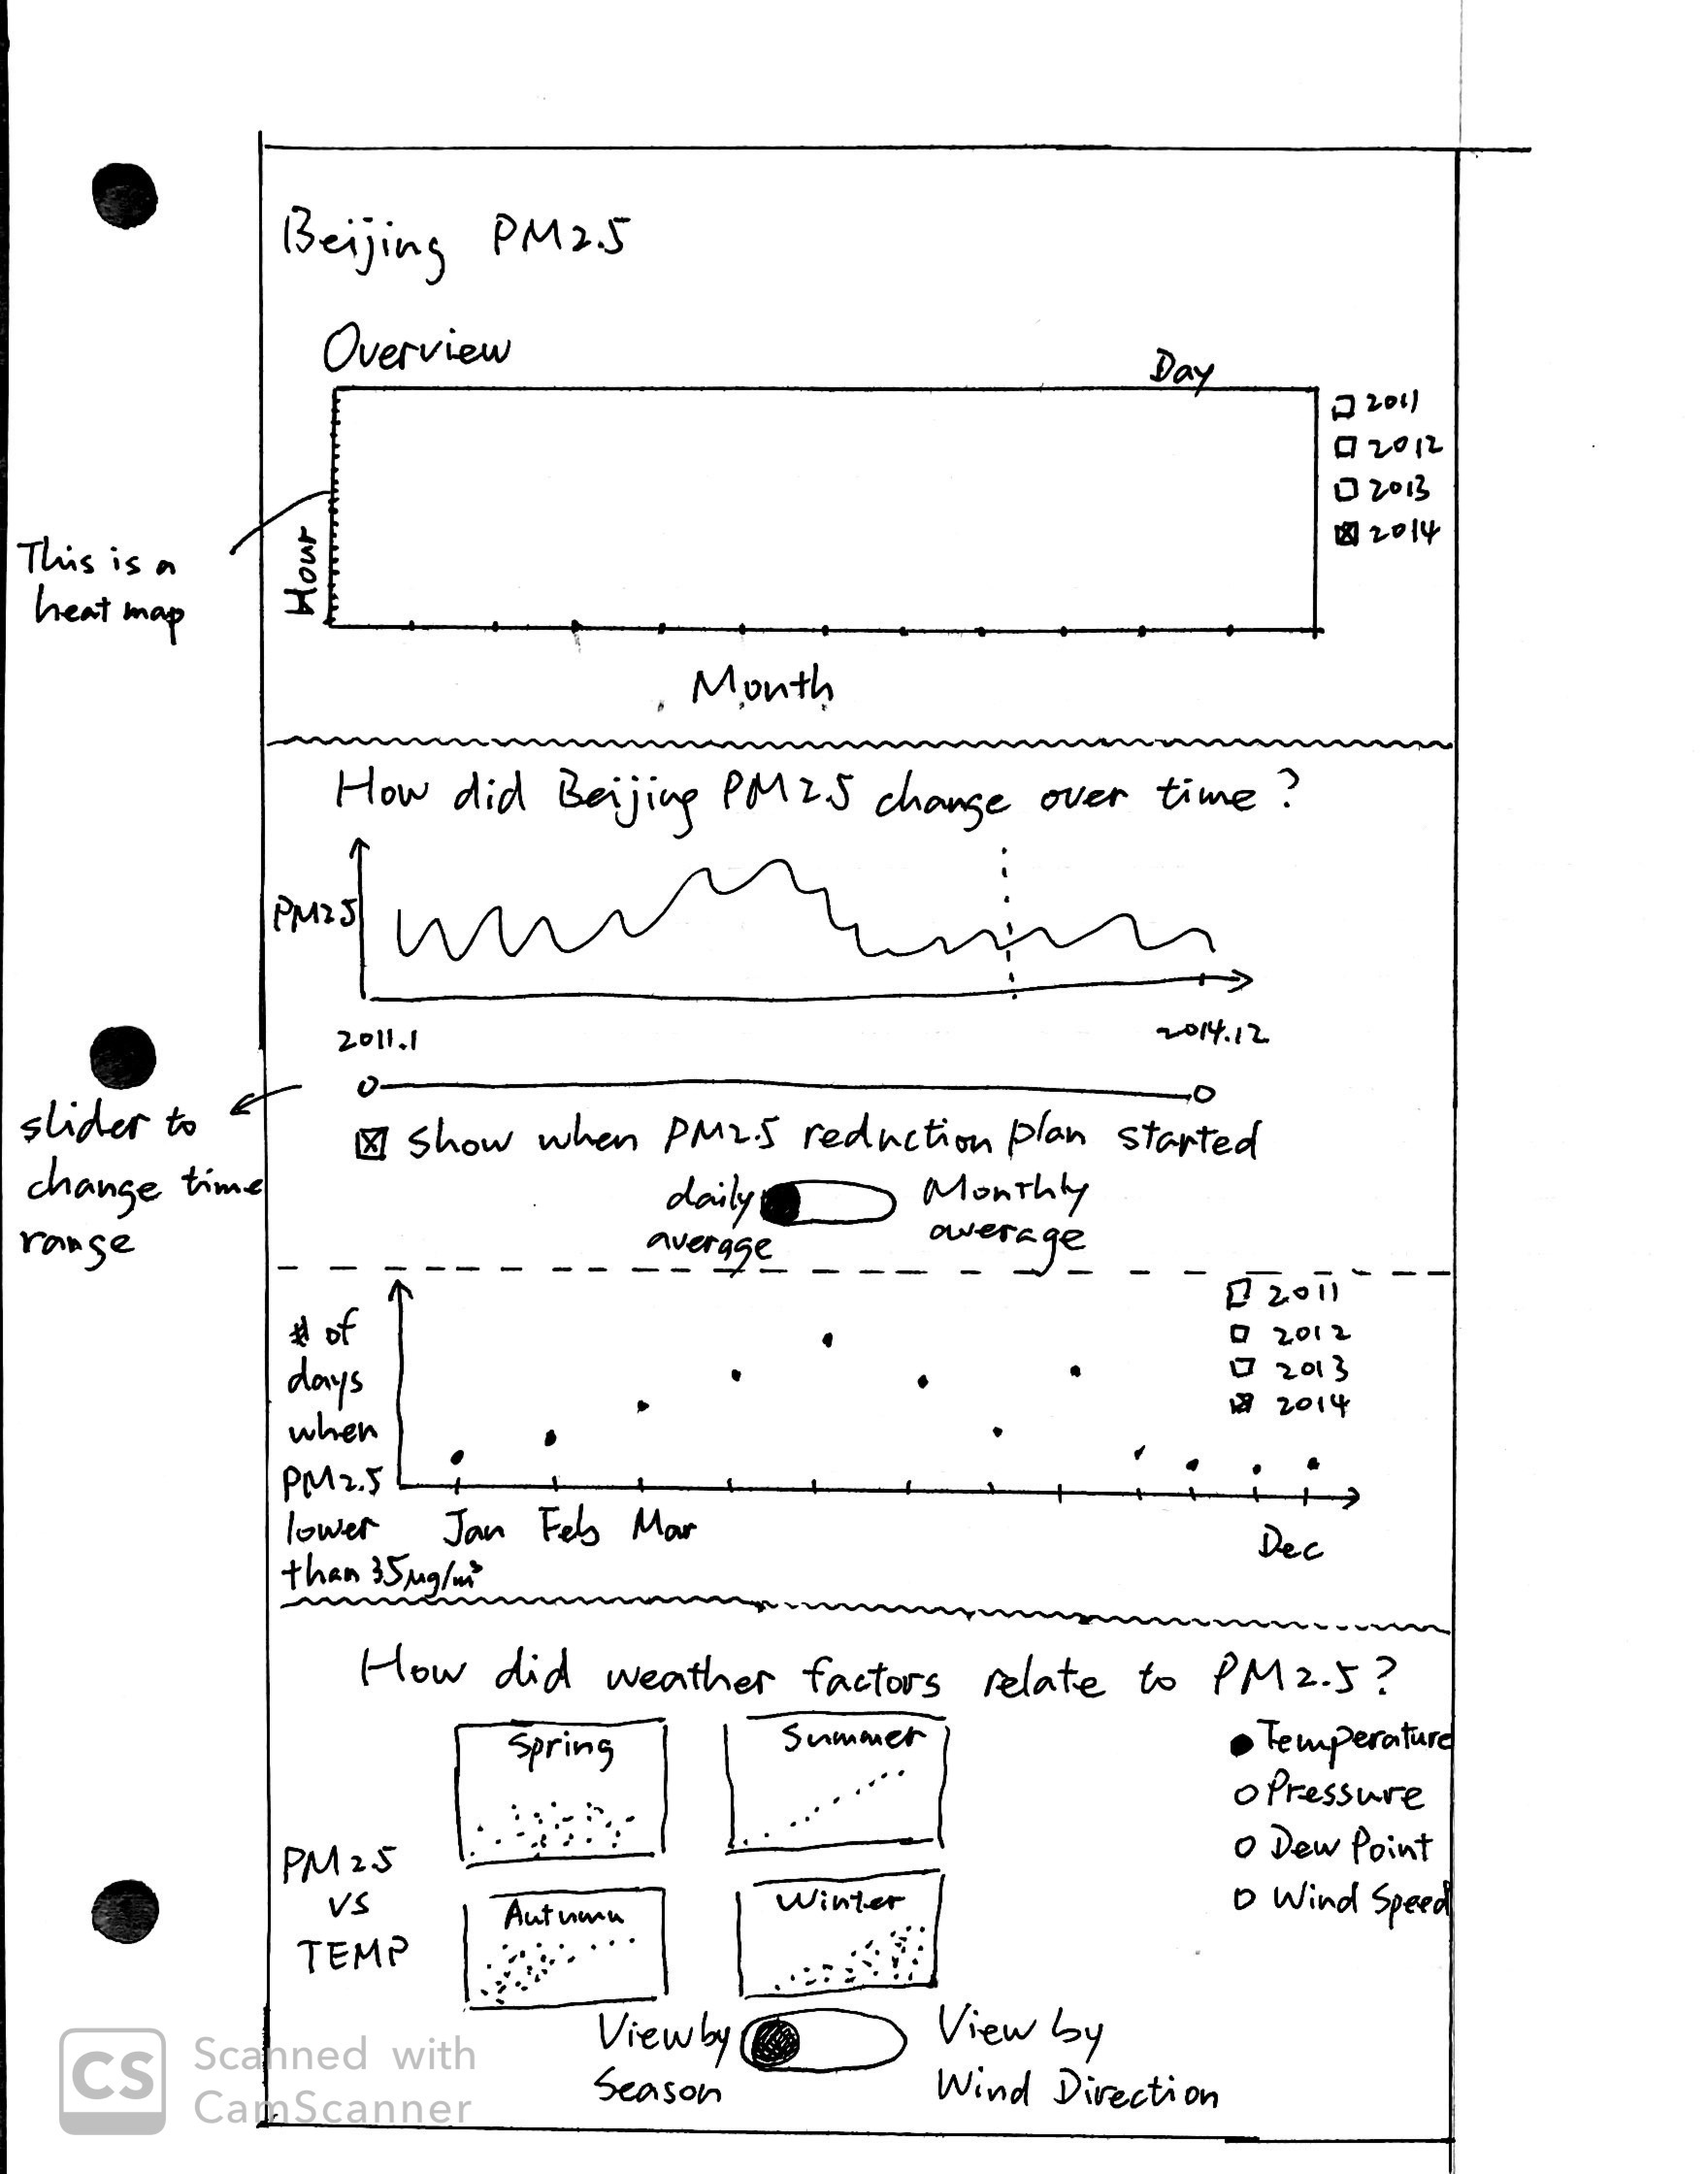 Beijing PM2.5
Overview
Day
2011
2012
2013
2014
Hour
This is a
heat map
Month
How did Beijing PM2.5 change over time?
PM25
2011.1
2014.12
slider to
change time
range
show when PM2.5 reduction plan started
daily
average
Monthly
average
# of
days
when
PM2.5
lower
than 35μg/m³
2011
2012
2013
2014
Jan Feb Mar
Dec
How did weather factors relate to PM2.5?
Spring
Summer
Autumn
Winter
PM25
VS
TEMP
Temperature
Pressure
Dew Point
Wind Speed
View by
Season
View by
Wind Direction
CS
Scanned with
CamScanner